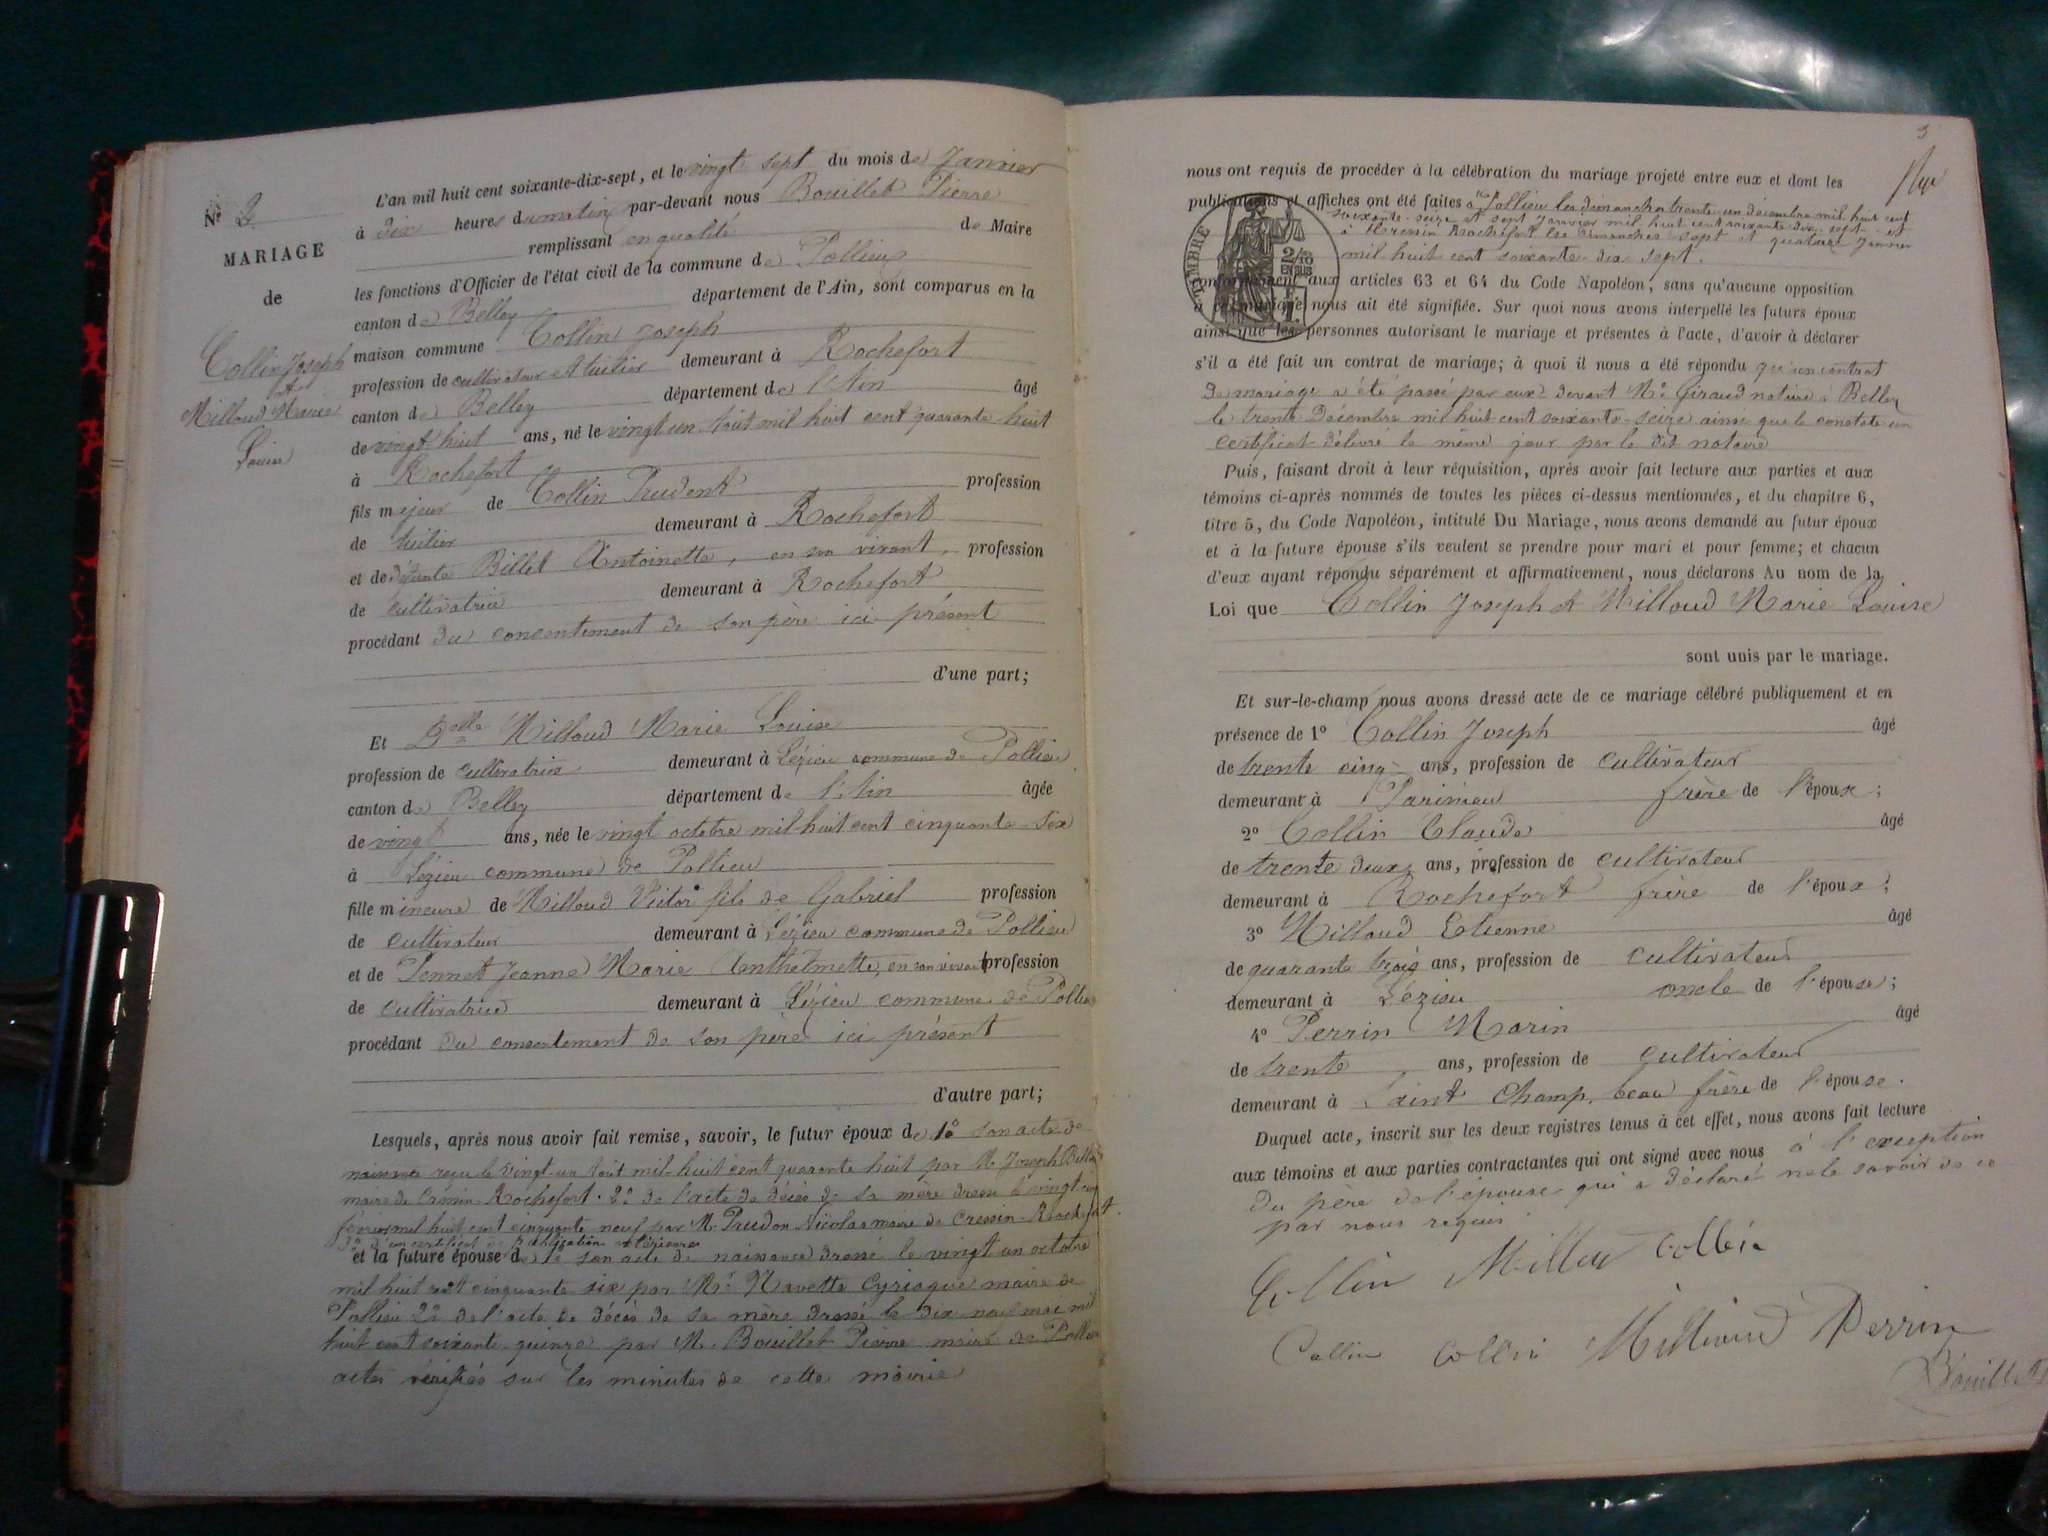 L'an mil huit cent soixante-dix-sept, et le vingt sept du mois de Janvier
à dix heures du matin par-devant nous Bouillet Pierre
remplissant en qualité de Maire
les fonctions d'Officier de l'état civil de la commune de Pollieu
canton de Belley département de l'Ain, sont comparus en la
maison commune Collin Joseph
profession de cultivateur et huilier demeurant à Rochefort
canton de Belley département de l'Ain âgé
de vingt huit ans, né le vingt un Août mil huit cent quarante huit
à Rochefort
fils majeur de Collin Prudent profession
de huilier demeurant à Rochefort
et de défunte Billet Antoinette, en son vivant, profession
de cultivatrice demeurant à Rochefort
procédant du consentement de son père ici présent
d'une part;
Nº 2
MARIAGE
de
Collin Joseph
et
Milloud Marie
Louise
Et Delle Milloud Marie Louise
profession de cultivatrice demeurant à Lézieu commune de Pollieu
canton de Belley département de l'Ain âgée
de vingt ans, née le vingt octobre mil huit cent cinquante six
à Lézieu commune de Pollieu
fille mineure de Milloud Victor fils de Gabriel profession
de cultivateur demeurant à Lézieu commune de Pollieu
et de Pennet Jeanne Marie Anthelmette, en son vivant profession
de cultivatrice demeurant à Lézieu commune de Pollieu
procédant du consentement de son père ici présent
d'autre part;
Lesquels, après nous avoir fait remise, savoir, le futur époux de 1º son acte de
naissance reçu le vingt un Août mil huit cent quarante huit par M. Joseph Billet
maire de Cressin Rochefort. 2º de l'acte de décès de sa mère dressé le vingt cinq
février mil huit cent cinquante neuf par M. Prudon Nicolas maire de Cressin-Rochefort.
3º d'un certificat de publication
et la future épouse de 1º son acte de naissance dressé le vingt un octobre
mil huit cent cinquante six par Mr. Navette Cyriaque maire de
Pollieu 2º de l'acte de décès de sa mère dressé le dix neuf mai mil
huit cent soixante quinze par M. Bouillet Pierre maire de Pollieu
actes vérifiés sur les minutes de cette mairie
3
nous ont requis de procéder à la célébration du mariage projeté entre eux et dont les
publications et affiches ont été faites à Pollieu les dimanches trente un décembre mil huit cent
soixante-seize et sept Janvier mil huit cent soixante dix sept et
à Cressin Rochefort les dimanches sept et quatorze Janvier
mil huit cent soixante-dix sept.
TIMBRE
2/10
EN SUS
conformément aux articles 63 et 64 du Code Napoléon, sans qu'aucune opposition
mariage nous ait été signifiée. Sur quoi nous avons interpellé les futurs époux
ainsi que les personnes autorisant le mariage et présentes à l'acte, d'avoir à déclarer
s'il a été fait un contrat de mariage; à quoi il nous a été répondu qu'un contrat
de mariage a été passé par eux devant Me Giraud notaire à Belley
le trente Décembre mil huit cent soixante-seize ainsi que le constate un
certificat délivré le même jour par le dit notaire
Puis, faisant droit à leur réquisition, après avoir fait lecture aux parties et aux
témoins ci-après nommés de toutes les pièces ci-dessus mentionnées, et du chapitre 6,
titre 5, du Code Napoléon, intitulé Du Mariage, nous avons demandé au futur époux
et à la future épouse s'ils veulent se prendre pour mari et pour femme; et chacun
d'eux ayant répondu séparément et affirmativement, nous déclarons Au nom de la
Loi que Collin Joseph et Milloud Marie Louise
sont unis par le mariage.
Et sur-le-champ nous avons dressé acte de ce mariage célébré publiquement et en
présence de 1º Collin Joseph âgé
de trente cinq ans, profession de cultivateur
demeurant à Parimieu frère de l'époux;
2º Collin Claude âgé
de trente deux ans, profession de cultivateur
demeurant à Rochefort frère de l'époux;
3º Milloud Etienne âgé
de quarante trois ans, profession de cultivateur
demeurant à Lézieu oncle de l'épouse;
4º Perrin Marin âgé
de trente ans, profession de cultivateur
demeurant à Saint Champ, beau frère de l'épouse.
Duquel acte, inscrit sur les deux registres tenus à cet effet, nous avons fait lecture
aux témoins et aux parties contractantes qui ont signé avec nous à l'exception
du père de l'épouse qui a déclaré ne le savoir de ce
par nous requis
Collin Milloud Collin
Collin Collin Milloud Perrin
Bouillet